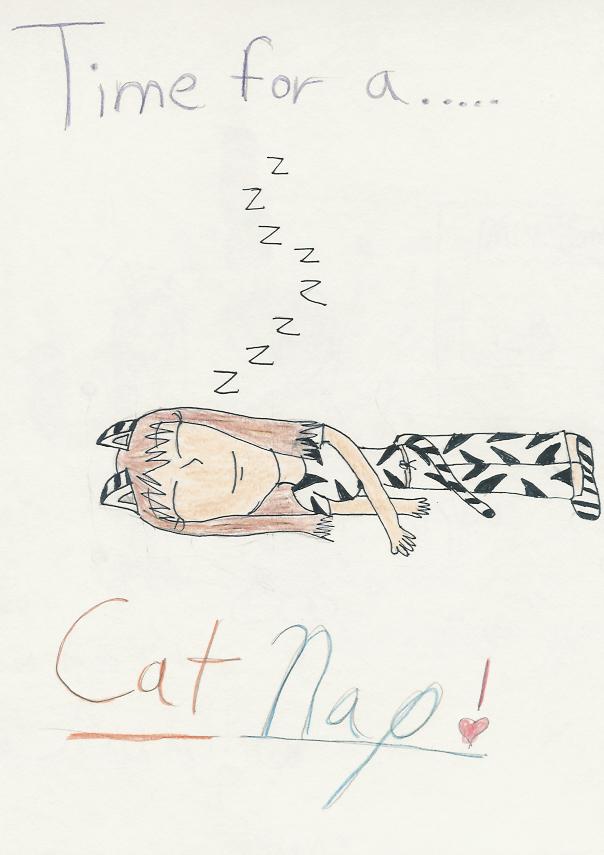 Time for a.....
z
z
z
z
z
z
z
z
Cat Nap!